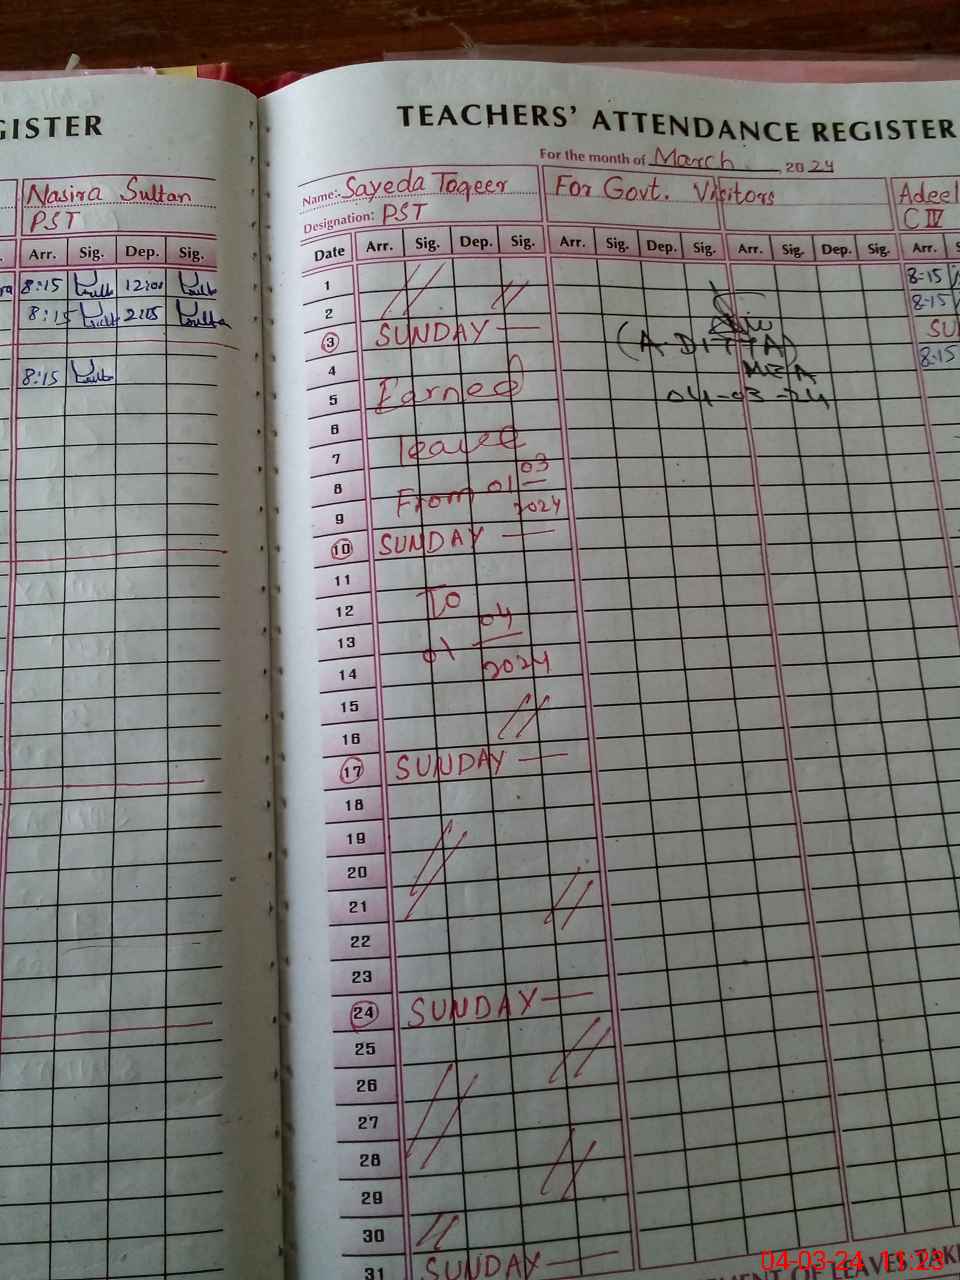 GISTER
Nasira Sultan
PST
Arr. Sig. Dep. Sig.
8:15 12:00
8:15 2:15
8:15
TEACHERS' ATTENDANCE REGISTER
For the month of March 2024
Name: Sayeda Toqeer
Designation: PST
For Govt. Visitors
Adeel
C IV
Date Arr. Sig. Dep. Sig. Arr. Sig. Dep. Sig. Arr. Sig. Dep. Sig. Arr. S
1 8:15
2 8:15
3 SUNDAY — SU
(A. DITTA)
4 8:15
MEA
5 Earned 04-03-24
6
7 leave
8 From 01 03
9 2024
10 SUNDAY —
11
12 To
13 01 04
14 2024
15
16
17 SUNDAY —
18
19
20
21
22
23
24 SUNDAY —
25
26
27
28
29
30
31 SUNDAY —
04-03-24 11:23